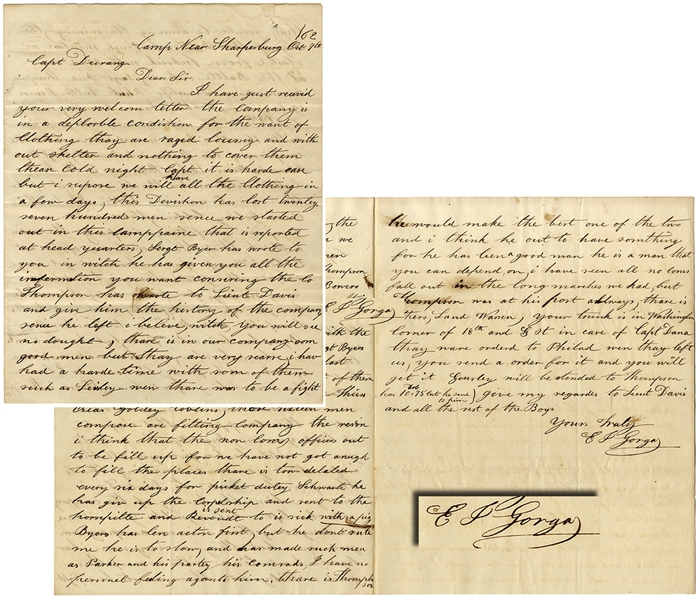 /62
Camp Near Sharpsburg Oct 7th
Capt Duerang
Dear Sir
I have gust receivd
your very welcom letter the Company is
in a deplorble condishon for the want of
Clothing thay are raged loussey and with
out shelter and nothing to cover them
thease Cold night Capt it is harde case
but i supose we will have all the Clothing in
a few days, this Devishon has lost twenley
seven hundred men sence we started
out in this Camppaine that is reported
at head qesarters, Sergt Byer has wrote to
you in witch he has given you all the
information you want consiring the Co
Thompson has wrote to Lieut Davis
and give him the history of the company
sence he left i beleive witch you will see
no dought, there is in our company som
good men but thay are very scarse, i hav
had a harde time with som of them
such as Lesley wen thare was to be a fight
the
we
Thompson
Bowers
E P Gorga
with the
Sgt Byers
last
of them
Theirs
men
compose are fitting company the reason
i think that the non Coms officers out
to be fill up for we have not got anough
to fill the places thare is two detaled
every six days for picket dutey Schwartz he
has give up the Corpelship and sent to the
hospitle and is sent to is sick with a pig
Byers has ben actin first, but he dont sute
me he is to slow, and has made such men
as Parker and his partey his Comrads, I have no
personel feling agants him, thare is Thompson
he would make the best one of the two
and i think he out to have somthing
for he has ben a good man he is a man that
you can depend on, i have seen all no coms
fall out in the long marches we had, but
Thompson was at his post always, there is
your trunk is in Washington
corner of 18th and G St in care of Capt Dana
thay ware orderd to Philad wen thay left
us, you send a order for it and you will
get it Gensley will be atended to Thompson
has 10.75 but he send to him) give my regardes to Lieut Davis
and all the rest of the Boys
Yours truly
E P Gorga
E P Gorga